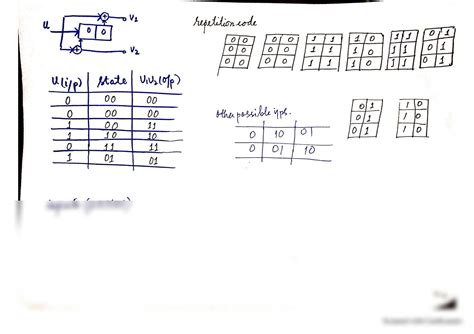 u
V1
0 0
V2
U(i/p) State V1V2(o/p)
0 00 00
0 00 00
1 00 11
1 10 10
0 11 11
1 01 01
repetition code
0 0
0 0
0 0
0 0
0 0
0 0
1 1
1 1
1 1
1 0
1 0
1 0
1 1
1 1
1 1
0 1
0 1
0 1
other possible i/ps.
0 10 01
0 01 10
0 1
0 1
0 1
1 0
1 0
1 0